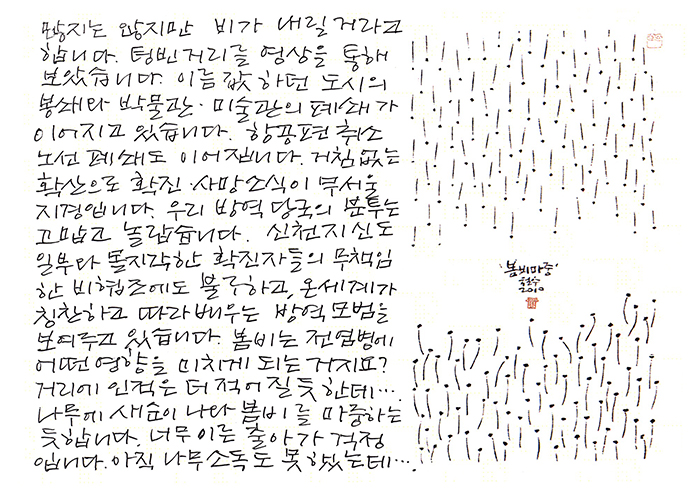 많지는 않지만 비가 내릴 거라고
합니다. 텅빈 거리를 영상을 통해
보았습니다. 이름값 하던 도시의
봉쇄와 박물관·미술관의 폐쇄가
이어지고 있습니다. 항공편 취소
노선 폐쇄도 이어집니다. 거침없는
확산으로 확진·사망소식이 무서울
지경입니다. 우리 방역 당국의 분투는
고맙고 놀랍습니다. 신천지 신도
일부와 몰지각한 확진자들의 무책임
한 비협조에도 불구하고, 온세계가
칭찬하고 따라 배우는 방역 모범을
보여주고 있습니다. 봄비는 전염병에
어떤 영향을 미치게 되는 거지요?
거리에 인적은 더 적어 질 듯 한데….
나무에 새순이 나와 봄비를 마중하는
듯합니다. 너무 이른 출아가 걱정
입니다. 아직 나무소독도 못 했는데….
'봄비마중'
2010